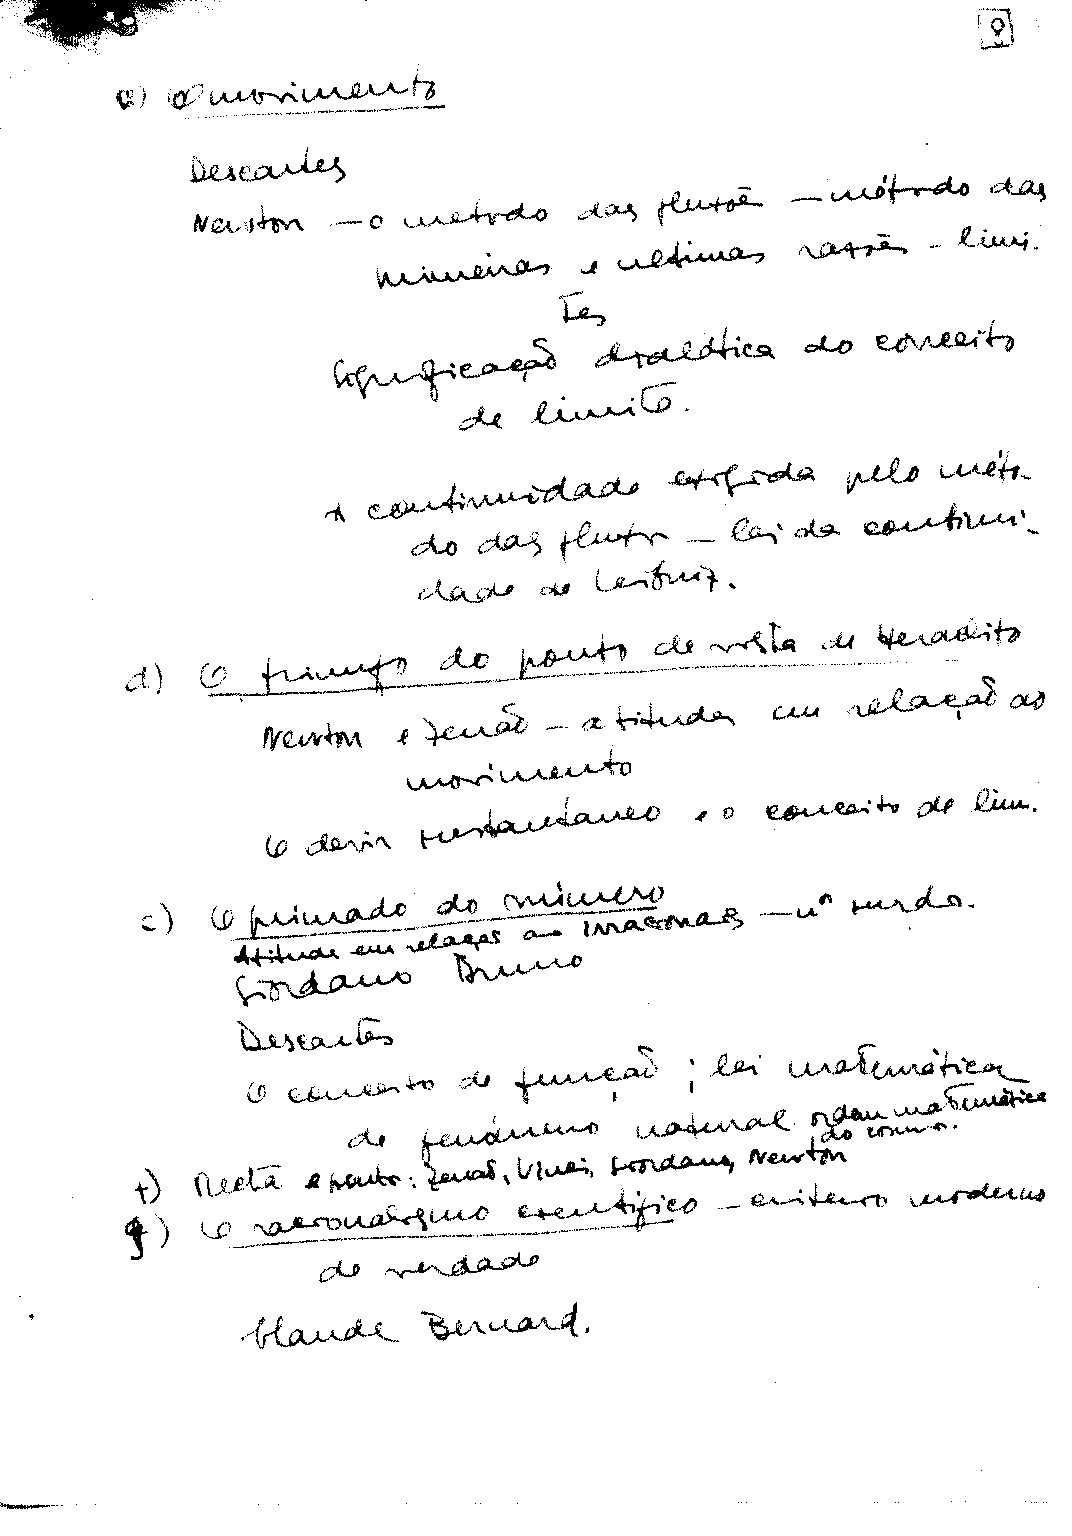 9
c) O movimento
Descartes
Newton — o metodo das fluxões — método das
primeiras e ultimas razões — limi-
tes
Significação dialética do conceito
de limite.
A continuidade exigida pelo méto-
do das fluxões — lei da continui-
dade de Leibniz.
d) O triunfo do ponto de vista de Heraclito
Newton e Zenão — atitudes em relação ao
movimento
O devir instantâneo e o conceito de lim.
e) O primado do número
Atitude em relação ao Irracionais — nº surdo.
Giordano Bruno
Descartes
O conceito de função; lei matemática
de fenómeno natural. ordem matemática
do cosmos.
f) Recta e ponto: Zenão, Vinci, Giordano, Newton
g) O racionalismo científico — criterio moderno
de verdade
Claude Bernard.